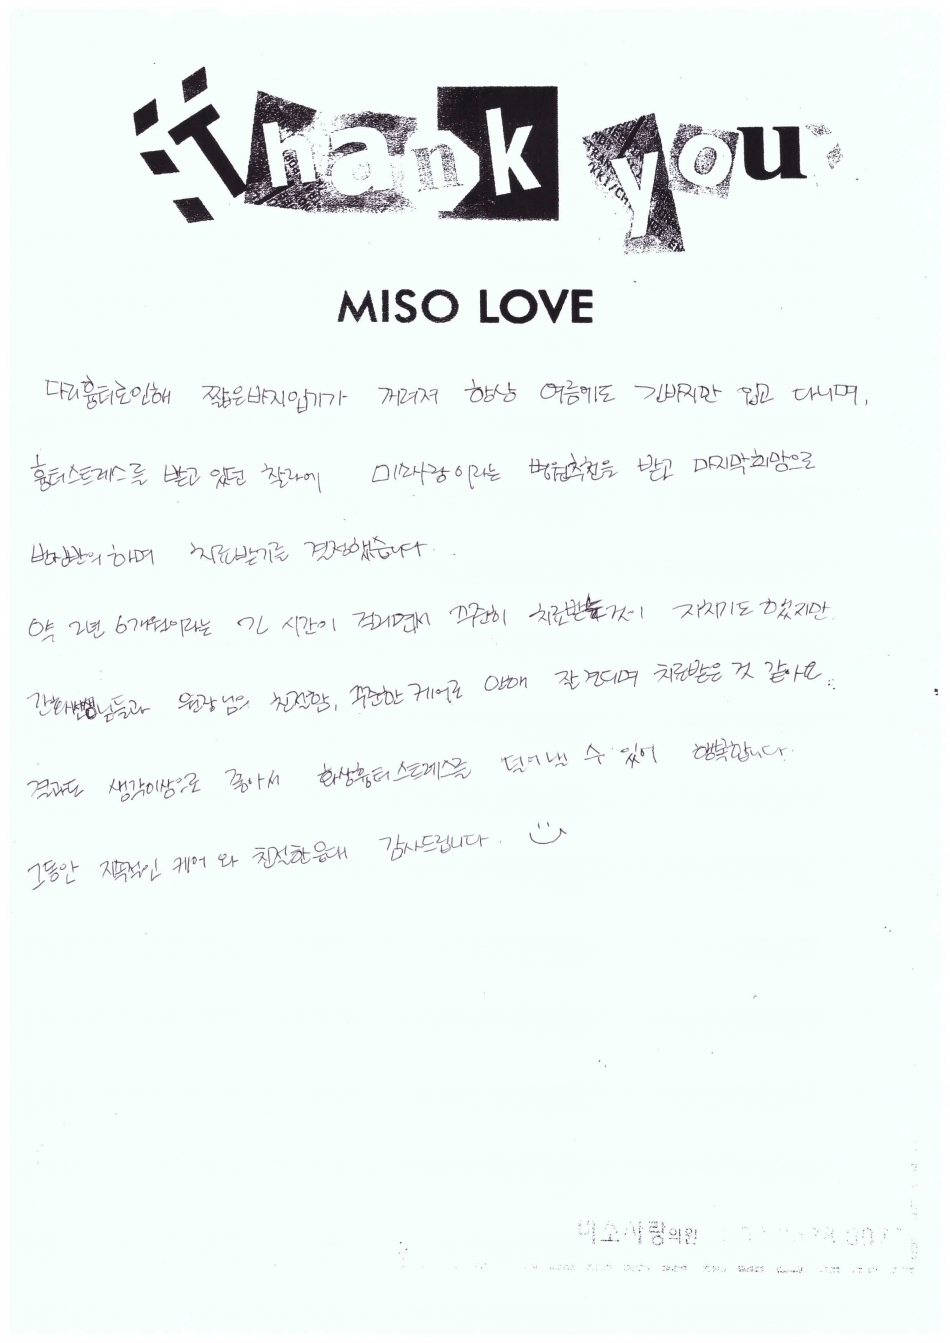 Thank you
MISO LOVE
다리흉터로인해 짧은바지입기가 꺼려져 항상 여름에도 긴바지만 입고 다니며,
흉터스트레스를 받고 있던 찰라에 미소사랑이라는 병원추천을 받고 마지막희망으로
반신반의하며 치료받기를 결정했습니다.
약 2년 6개월이라는 긴 시간이 걸리면서 꾸준히 치료받는것이 지치기도 했지만
간호사선생님들과 원장님의 친절함, 꾸준한 케어로 인해 잘 견디며 치료받은 것 같아요.
결과도 생각이상으로 좋아서 화상흉터스트레스를 덜어낼 수 있어 행복합니다.
그동안 지속적인 케어와 친절한응대 감사드립니다.
미소사랑의원